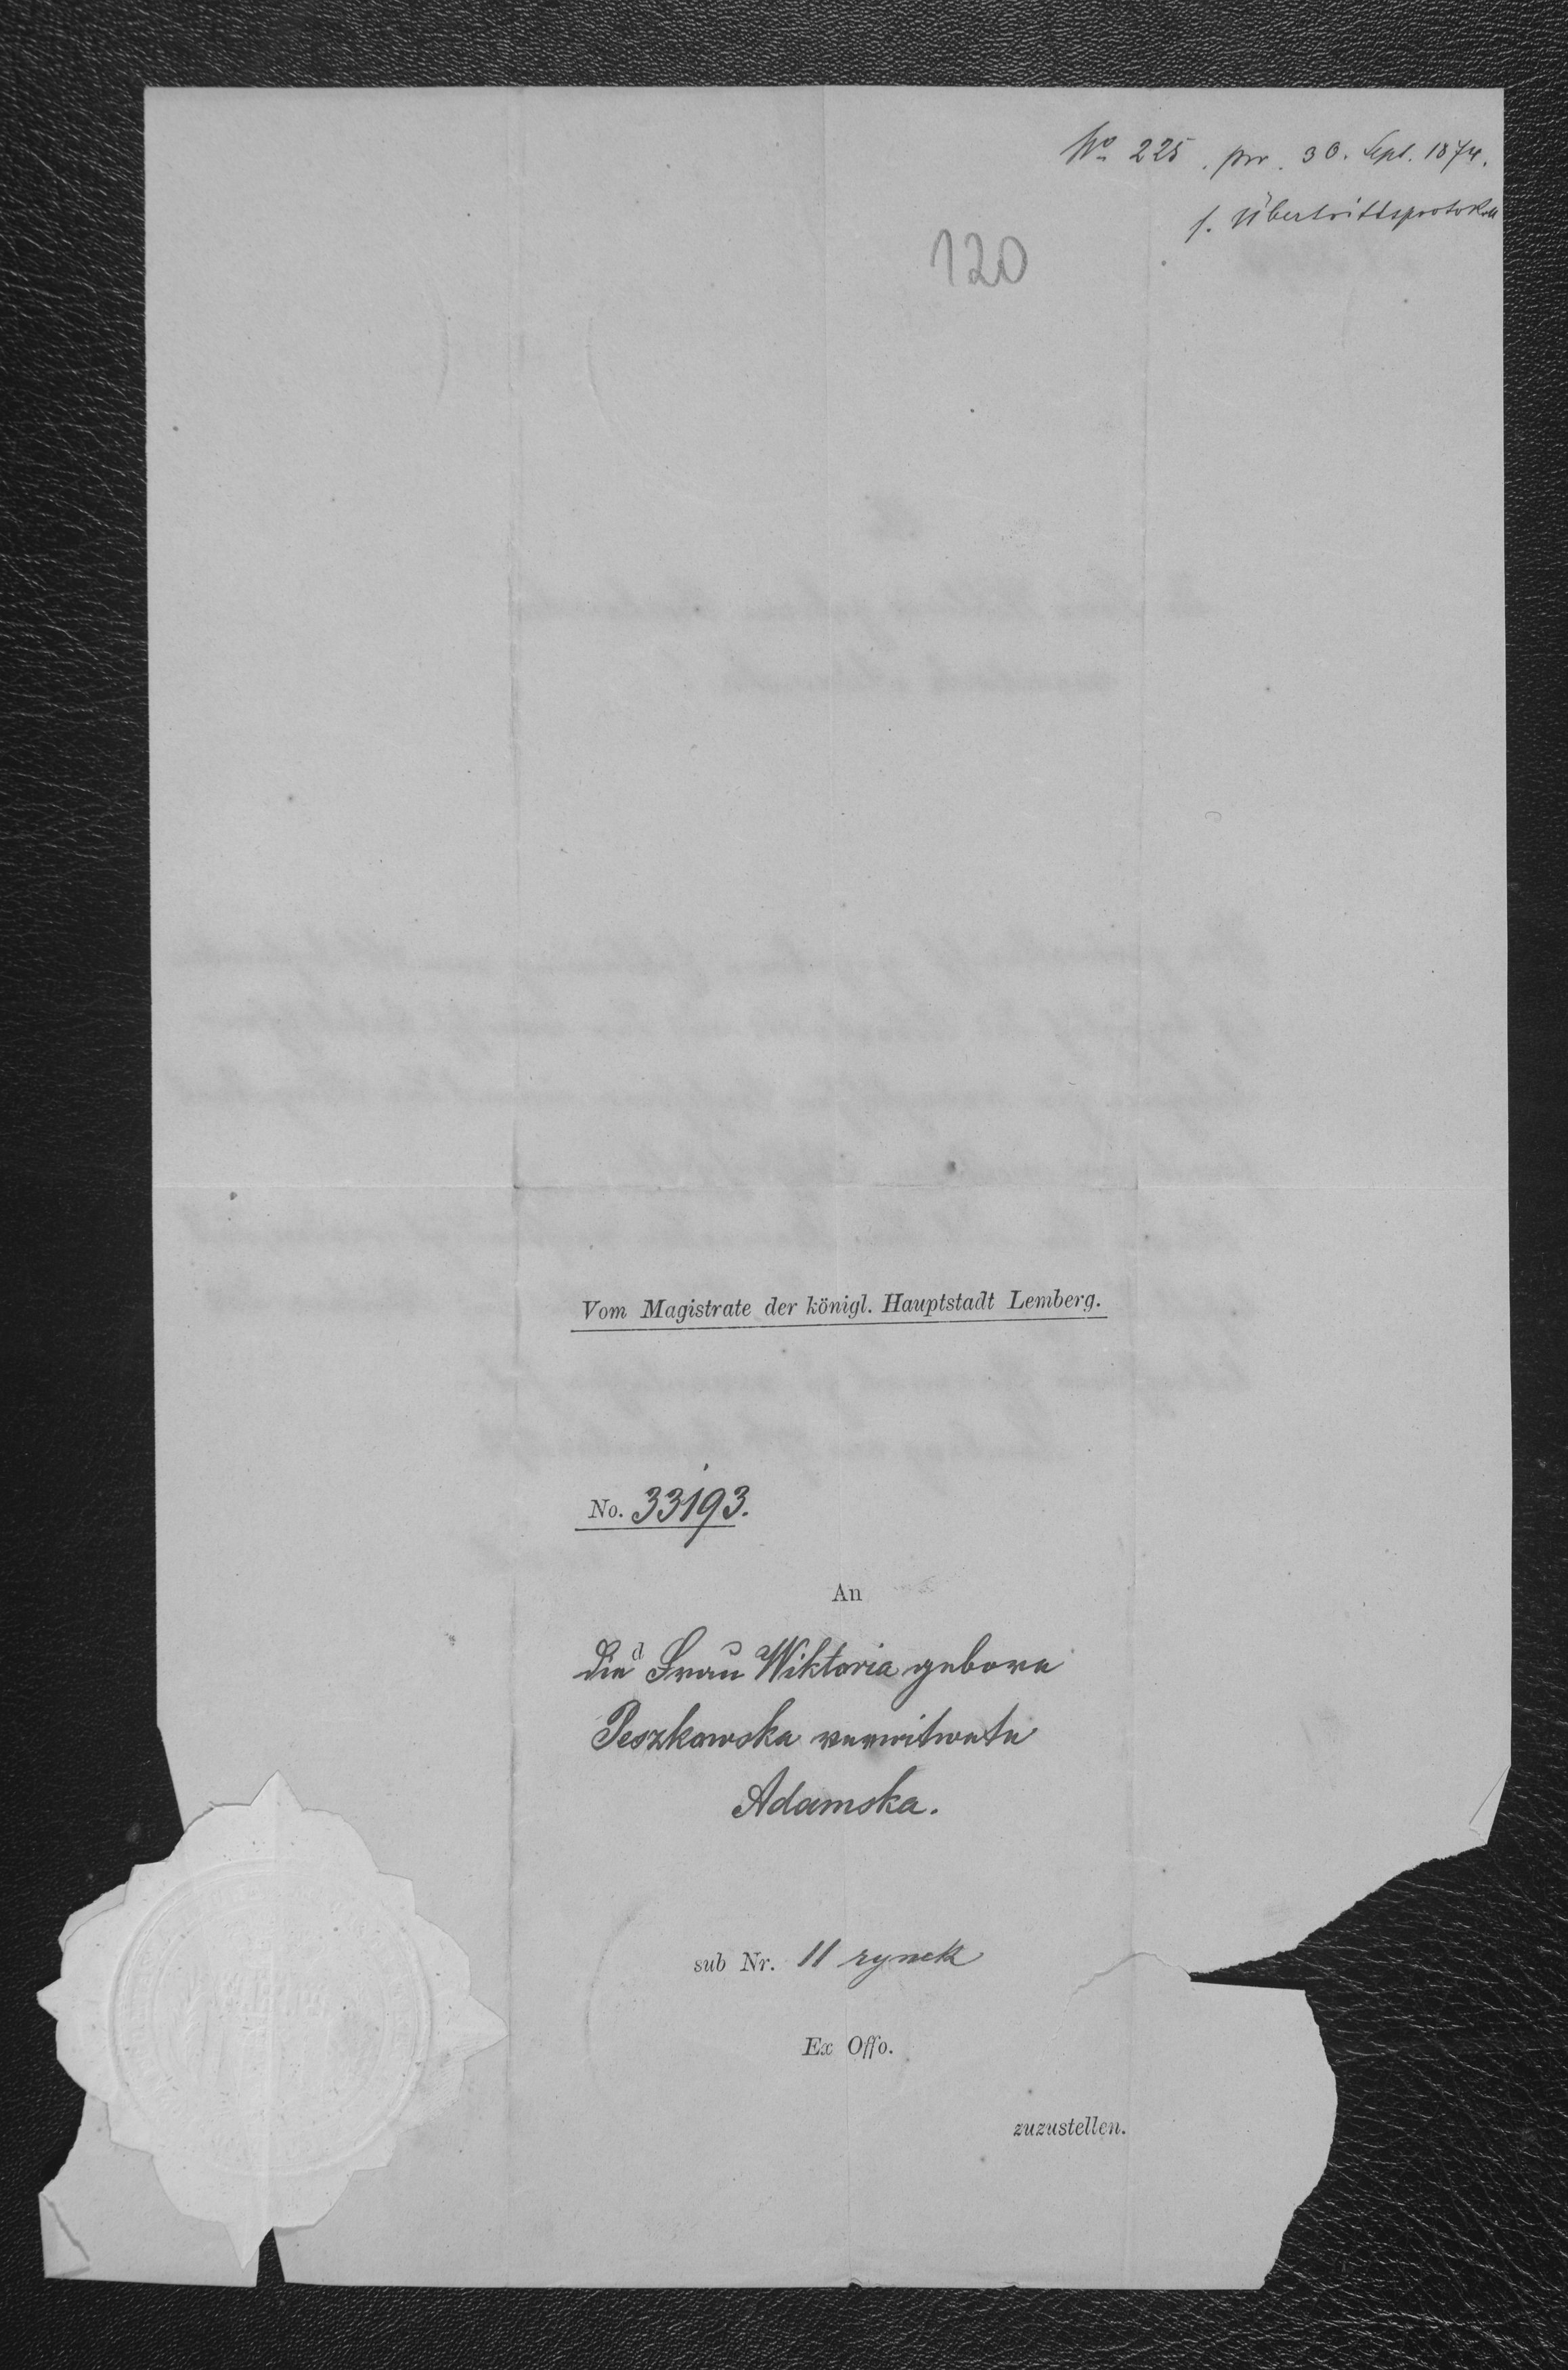 No 225. pr. 30. Sept. 1874.
f. Übertrittsprotokoll
120
Vom Magistrate der königl. Hauptstadt Lemberg.
No. 33193.
An
die Frau Wiktoria geborne
Peszkowska verwitwete
Adamska.
sub Nr. 11 rynek
Ex Offo.
zuzustellen.